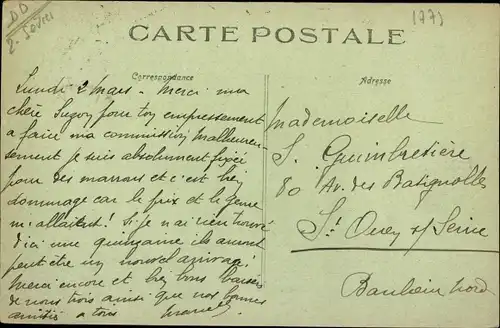 DD
2. Sèvres
(177)
CARTE POSTALE
Correspondance
Adresse
Lundi 2 Mars - Merci ma
chère pour ton empressement
a faire ma commission, Malheureu-
sement je suis absolument fixée
pour des marrons et c'est bien
dommage car le prix et le genre
m'allaient! Si je n'ai rien trouvé
d'ici une quinzaine ils auront
peut être un nouvel arrivage!
Merci encore et bien bons baisers
de nous trois ainsi que nos bonnes
amitiés a tous
Mademoiselle
S. Guimbretière
80 Av. des Batignolles
St Ouen s/ Seine
Banlieue Nord